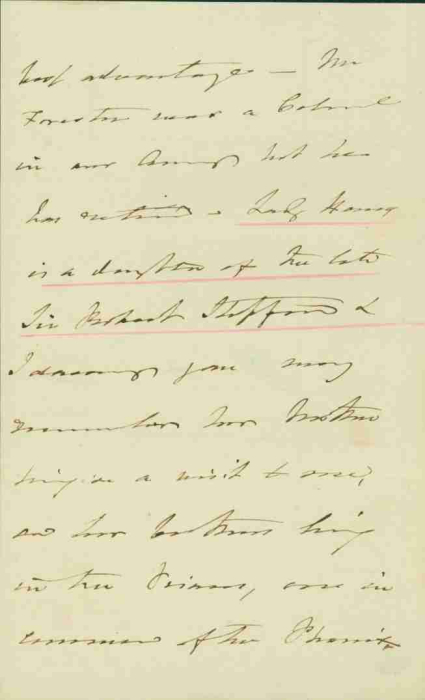 best advantage — Mr
Forester was a Colonel
in our Army but he
has retired. Lady Harvey
is a daughter of the late
Sir Robert &
I daresay you may
remember her Mother
a visit to me,
and her brothers being
in the one in
command of the Phoenix